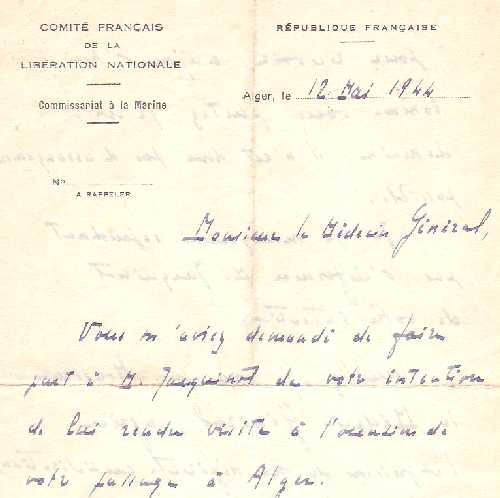 COMITÉ FRANÇAIS
DE LA
LIBÉRATION NATIONALE
Commissariat à la Marine
RÉPUBLIQUE FRANÇAISE
Alger, le 12 Mai 1944
No
A RAPPELER
Monsieur le Médecin Général,
Vous m'aviez demandé de faire
part à M. Jacquinot de votre intention
de lui rendre visite à l'occasion de
votre passage à Alger.